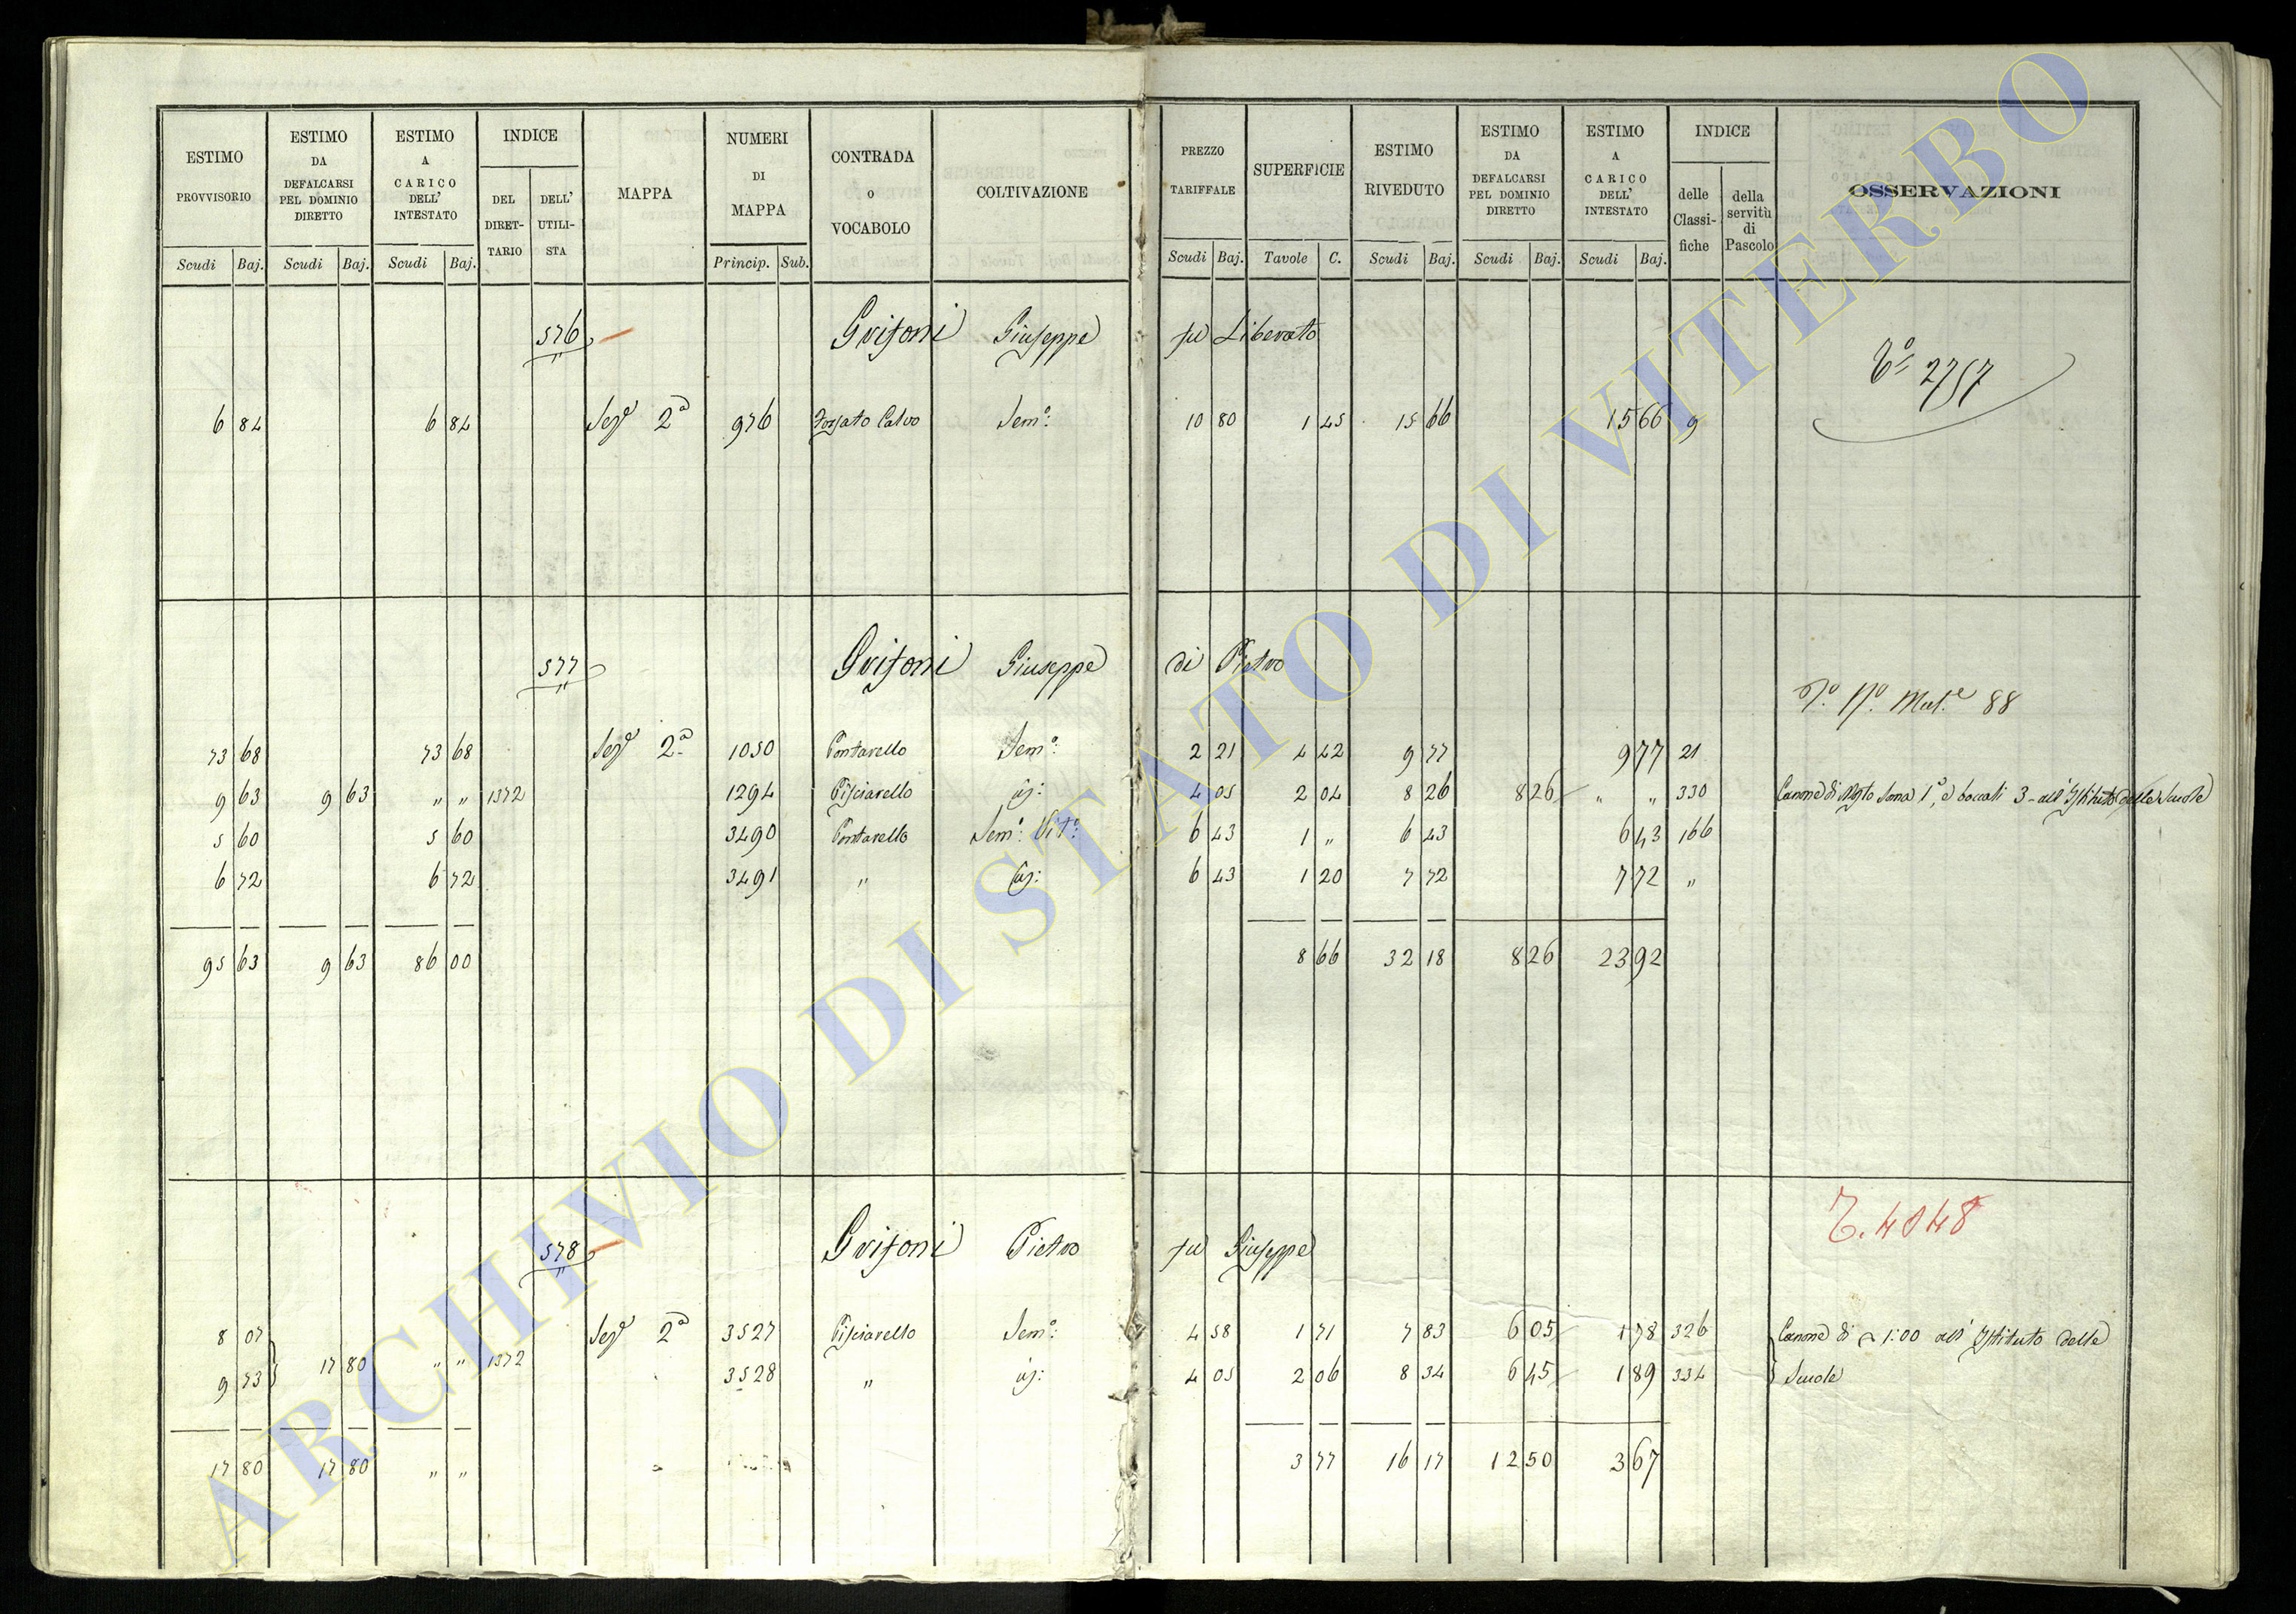 ESTIMO PROVVISORIO | ESTIMO DA DEFALCARSI PEL DOMINIO DIRETTO | ESTIMO A CARICO DELL' INTESTATO | INDICE DEL DIRET-TARIO | DELL' UTILI-STA | MAPPA | NUMERI DI MAPPA | CONTRADA o VOCABOLO | COLTIVAZIONE | PREZZO TARIFFALE | SUPERFICIE | ESTIMO RIVEDUTO | ESTIMO DA DEFALCARSI PEL DOMINIO DIRETTO | ESTIMO A CARICO DELL' INTESTATO | INDICE delle Classi-fiche | della servitù di Pascolo | OSSERVAZIONI
Scudi Baj. Scudi Baj. Scudi Baj. Princip. Sub. Scudi Baj. Tavole C. Scudi Baj. Scudi Baj. Scudi Baj.
576 Grifoni Giuseppe fu Liberato
2757
6 84 6 84 Seze 2a 976 Fossato Calvo Semo: 10 80 1 45 15 66 15 66 9
577 Grifoni Giuseppe di Pietro
88
73 68 73 68 Seze 2a 1050 Pontarello Semo: 2 21 4 42 9 77 9 77 21
9 63 9 63 " " 1372 1294 Pisciarello 4 05 2 04 8 26 8 26 " " 330 Canone di Mosto Soma 1 e boccali 3 - all' Istituto delle Scuole
5 60 5 60 3490 Pontarello Semo: Vito: 6 43 1 " 6 43 6 43 166
6 72 6 72 3491 " 6 43 1 20 7 72 7 72 "
95 63 9 63 86 00 8 66 32 18 8 26 23 92
T. 4048
578 Grifoni Pietro fu Giuseppe
8 07 17 80 " " 1372 Seze 2a 3527 Pisciarello Semo: 4 58 1 71 7 83 6 05 1 78 326 Canone di 1:00 all' Istituto delle
9 73 3528 " 4 05 2 06 8 34 6 45 1 89 334 Scuole
17 80 17 80 " " 3 77 16 17 12 50 3 67
ARCHIVIO DI STATO DI VITERBO